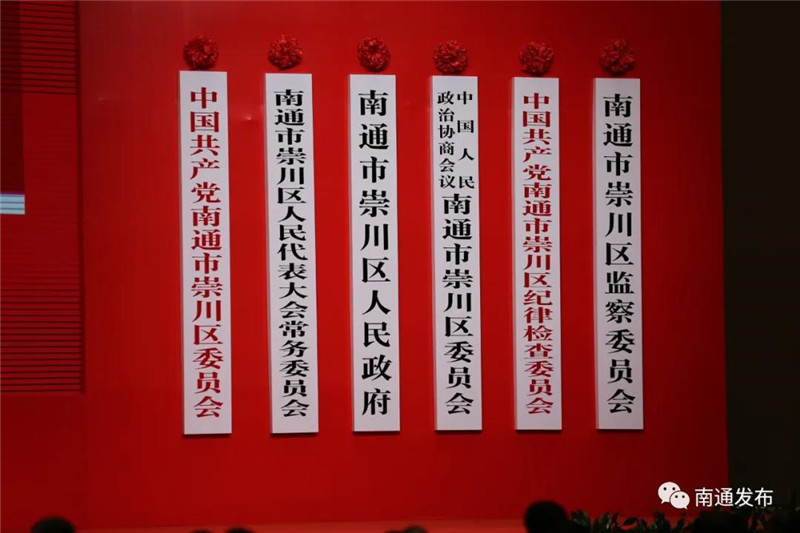 中国共产党南通市崇川区委员会
南通市崇川区人民代表大会常务委员会
南通市崇川区人民政府
中国人民
政治协商会议
南通市崇川区委员会
中国共产党南通市崇川区纪律检查委员会
南通市崇川区监察委员会
南通发布